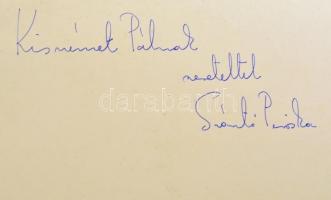 Kisnémet Pálnak
szeretettel
Szántó Piroska
darabanth.com